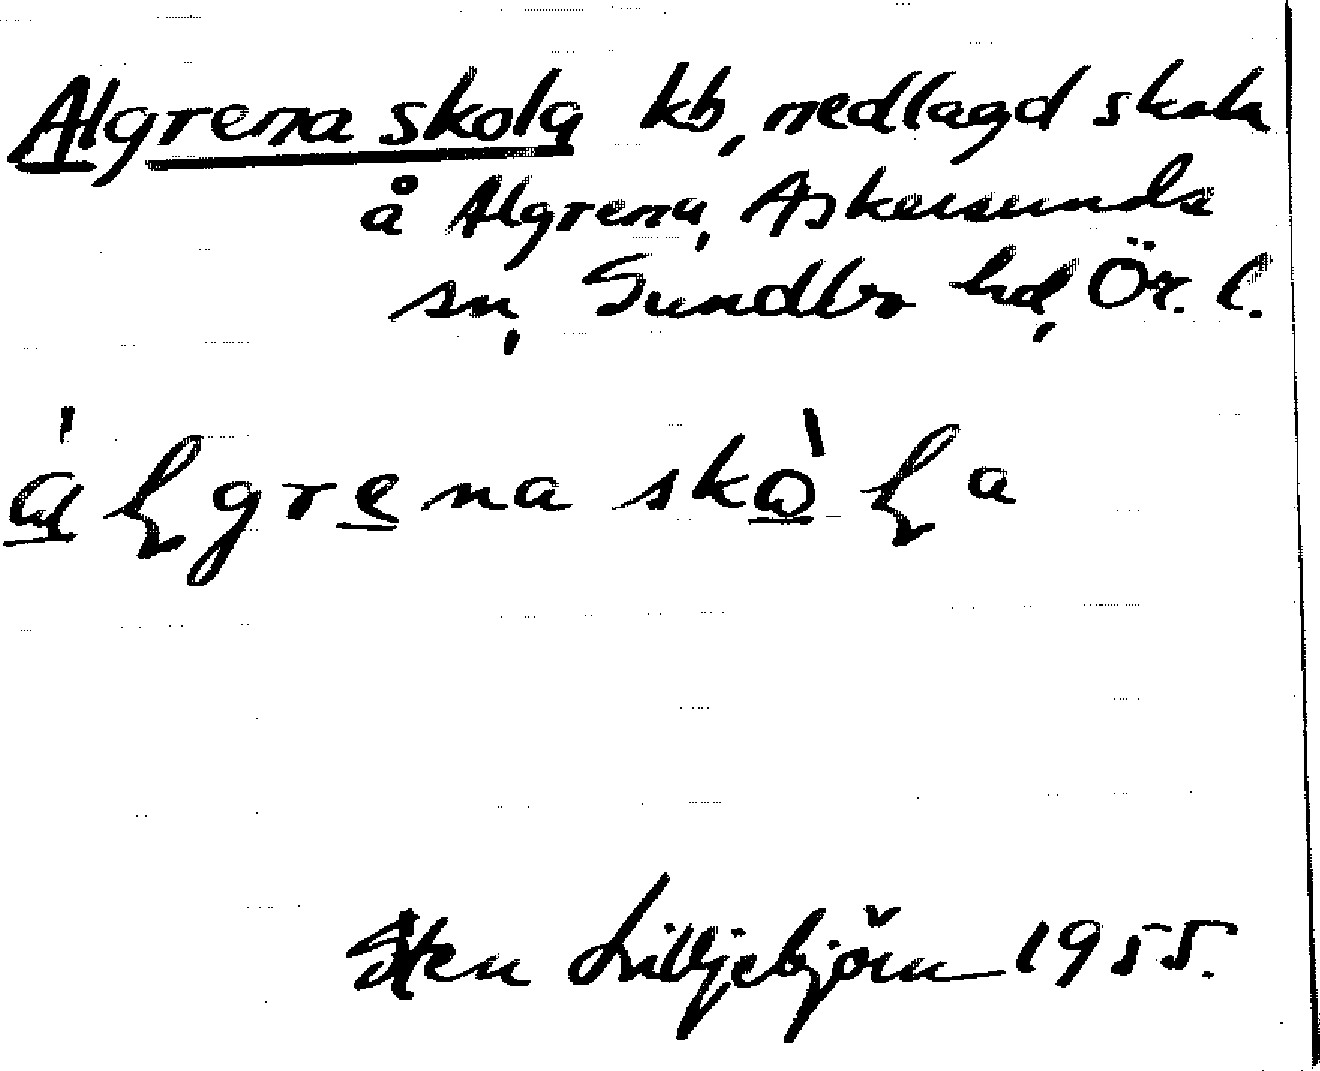 Algrena skola kb, nedlagd skola
å Algrena, Askersunds
sn, Sundbo hd, Ör. l.
álgrena skòla
Sten Lilljebjörn 1955.